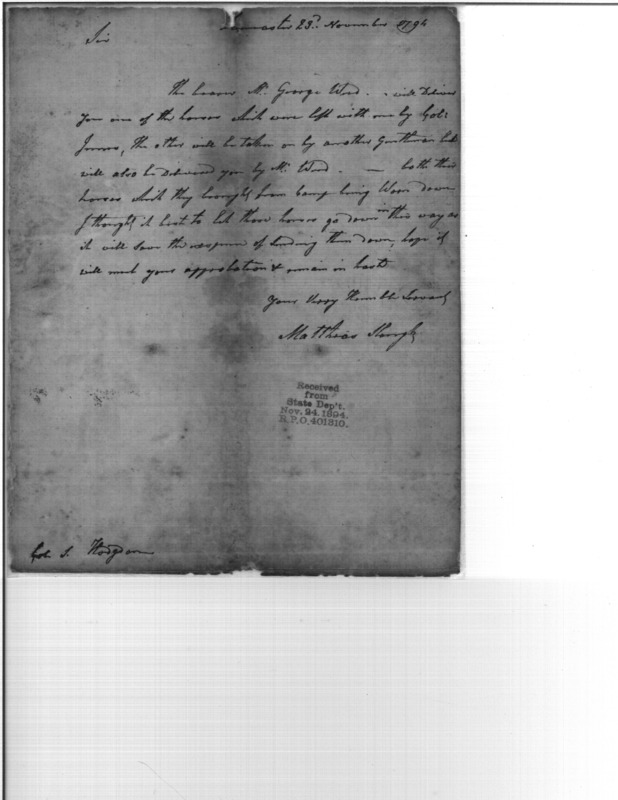 Lancaster 23d. November 1794
Sir
The bearer Mr. George Wood - will Deliver
you one of the horses which were left with me by Col:
the other will be taken on by another Gentleman but
will also be Delivered you by Mr. Wood. — both their
horses which they brought from Camp being Worn down
I thought it best to let those horses go down in this way as
it will save the expence of Sending them down, hope it
will meet your approbation & remain in haste
Your Very Humble Servant
Matthias Slough
Received
from
State Dep't.
Nov. 24. 1894.
R.P.O. 401310.
Col. S. Hodgdon